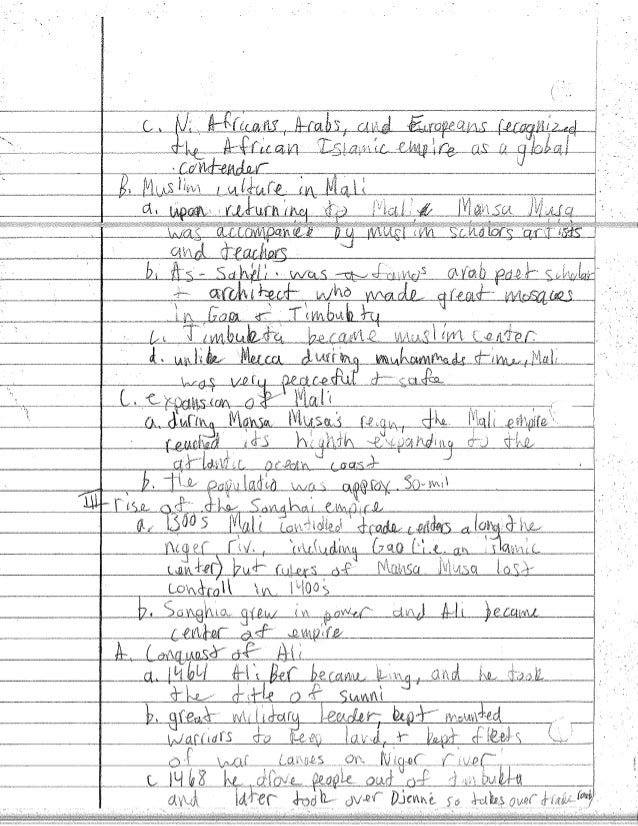 c. N. Africans, Arabs, and Europeans recognized
the African Islamic empire as a global
contender
B. Muslim culture in Mali
a. upon returning to Mali Mansa Musa
was accompanied by muslim scholors artists
and teachers
b. As-Saheli was a famos arab poet scholar
+ architect who made great mosques
in Goa & Timbukty
c. Timbukta became muslim center
d. unlike Mecca during muhammads time, Mali
was very peaceful & safe
C. expansion of Mali
a. during Mansa Musa's reign, the Mali empire
reached its highth expanding to the
atlantic ocean coast
b. the populatio was approx. 50-mil
III- rise of the Songhai empire
a. 1300s Mali controlled trade centers along the
niger riv., including Gao (i.e. an islamic
center) but rulers of Mansa Musa lost
controll in 1400's
b. Songhia grew in power and Ali became
center of empire
A. Conquest of Ali
a. 1464 Ali Ber became king, and he took
the title of sunni
b. great military leader, kept mounted
warriors to keep land, + kept fleets
of war canoes on Niger river
c 1468 he drove people out of timbukta
and later took over Djenne so takes over trade